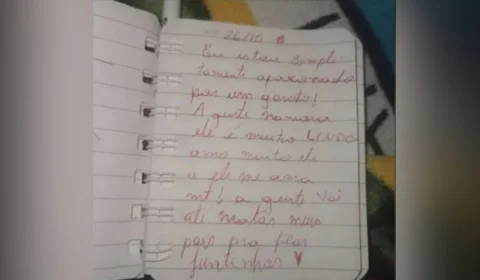 26/10
Eu estou comple-
tamente apaixonada
por um garoto!
A gente namora
ele é muito LINDO
amo muito ele
e ele me ama
mt! a gente vai
até matar meus
pais pra ficar
juntinhos